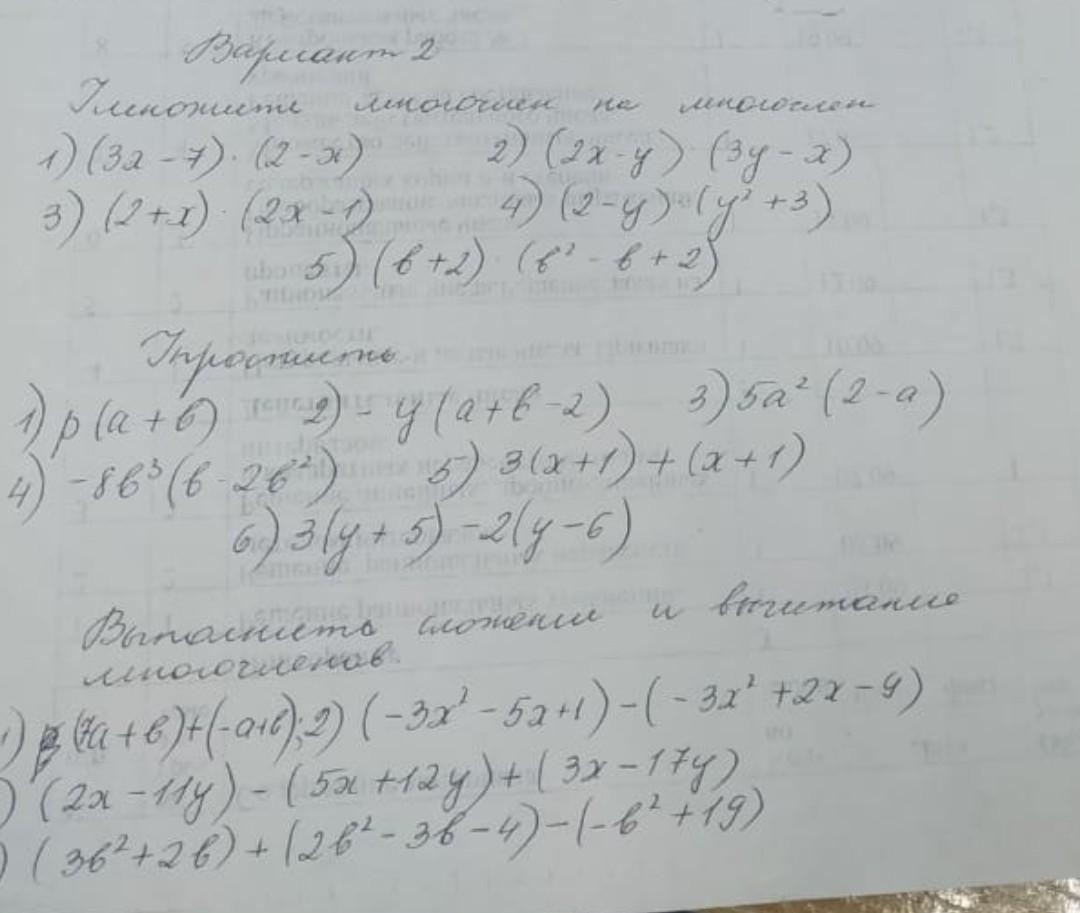 Вариант 2
Умножить многочлен на многочлен
1) (3x - 7) · (2 - x) 2) (2x - y) (3y - x)
3) (2 + x) · (2x - 1) 4) (2 - y) · (y² + 3)
5) (b + 2) · (b² - b + 2)
Упростить
1) p(a + b) 2) - y(a + b - 2) 3) 5a² (2 - a)
4) - 8b³(b - 2b²) 5) 3(x + 1) + (x + 1)
6) 3(y + 5) - 2(y - 6)
Выполнить сложение и вычитание
многочленов
1) (7a + b) + (-a + b); 2) (-3x² - 5x + 1) - (-3x² + 2x - 9)
) (2x - 11y) - (5x + 12y) + (3x - 17y)
) (3b² + 2b) + (2b² - 3b - 4) - (-b² + 19)